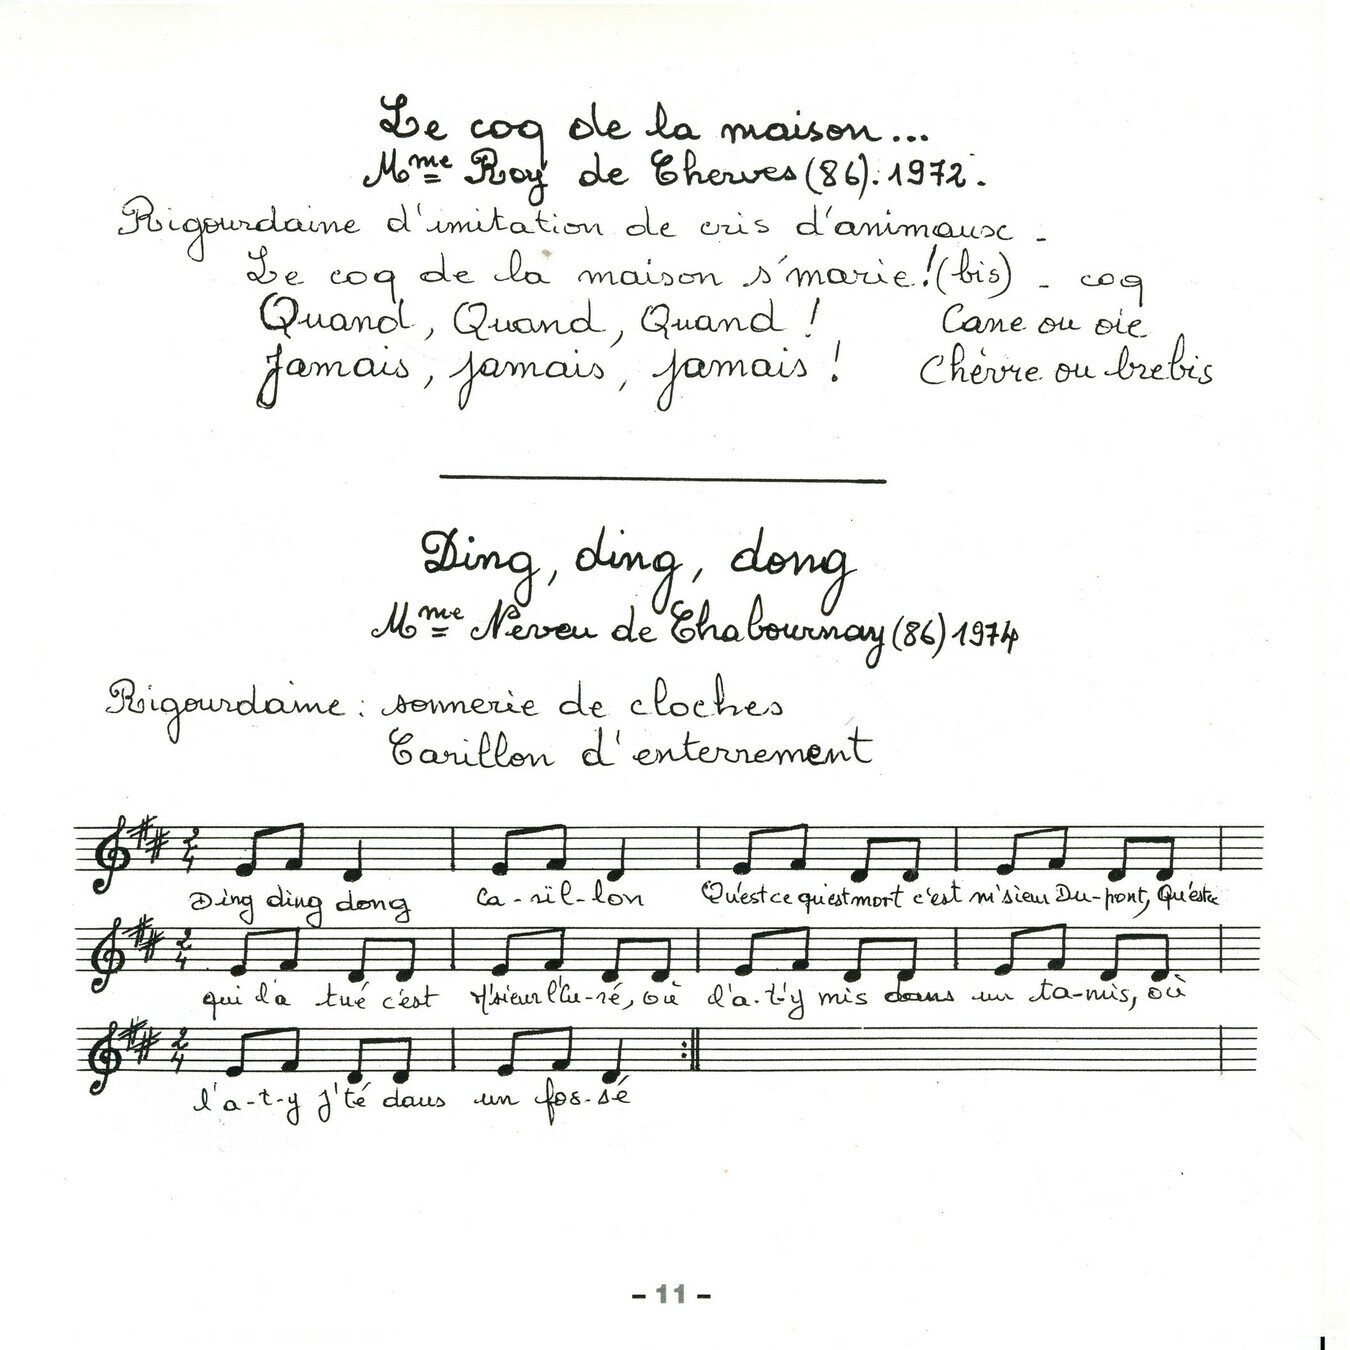 Le coq de la maison...
Mme Roy de Cherves (86). 1972.
Rigourdaine d'imitation de cris d'animaux -
Le coq de la maison s'marie! (bis) - coq
Quand, Quand, Quand ! Cane ou oie
Jamais, jamais, jamais ! Chèvre ou brebis
Ding, ding, dong
Mme Neveu de Chabournay (86) 1974
Rigourdaine : sonnerie de cloches
Carillon d'enterrement
2/4
Ding ding dong Ca-ril-lon Qu'est ce qu'est mort c'est m'sieu Du-pont, Qu'est ce
2/4
qui l'a tué c'est M'sieur l'Cu-ré, où l'a-t'y mis dans un ta-mis, où
2/4
l'a-t-y j'té dans un fos-sé
- 11 -